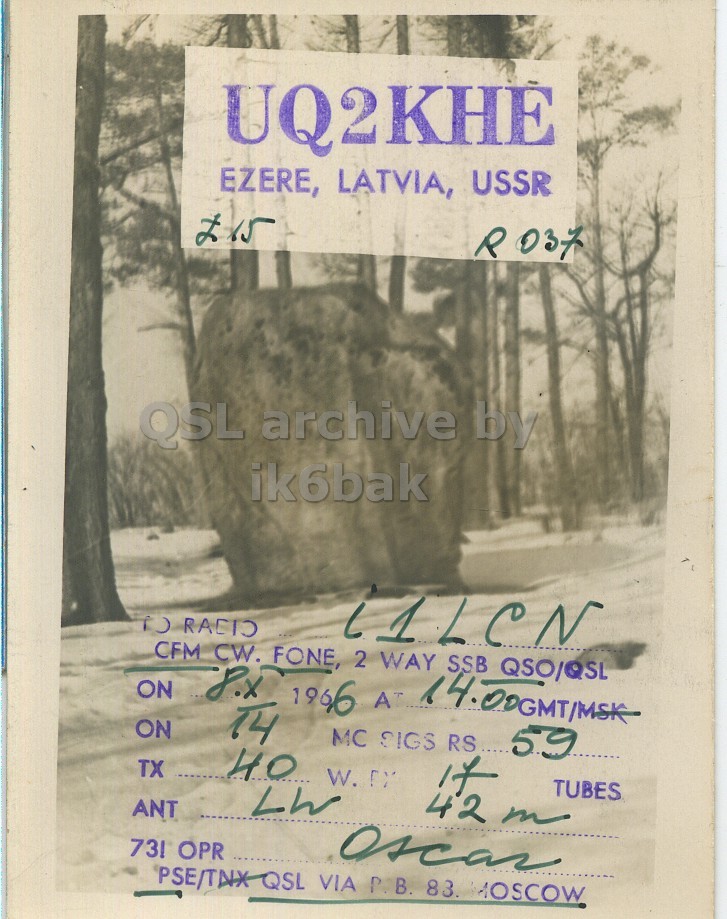 UQ2KHE
EZERE, LATVIA, USSR
Z 15 R 037
QSL archive by
ik6bak
TO RADIO i1LCN
CFM CW. FONE, 2 WAY SSB QSO/QSL
ON 8.X 1966 AT 14.00 GMT/MSK
ON 14 MC SIGS RS 59
TX 40 W. RX 17 TUBES
ANT LW 42 m
73! OPR Oscar
PSE/TNX QSL VIA P.B. 83. MOSCOW